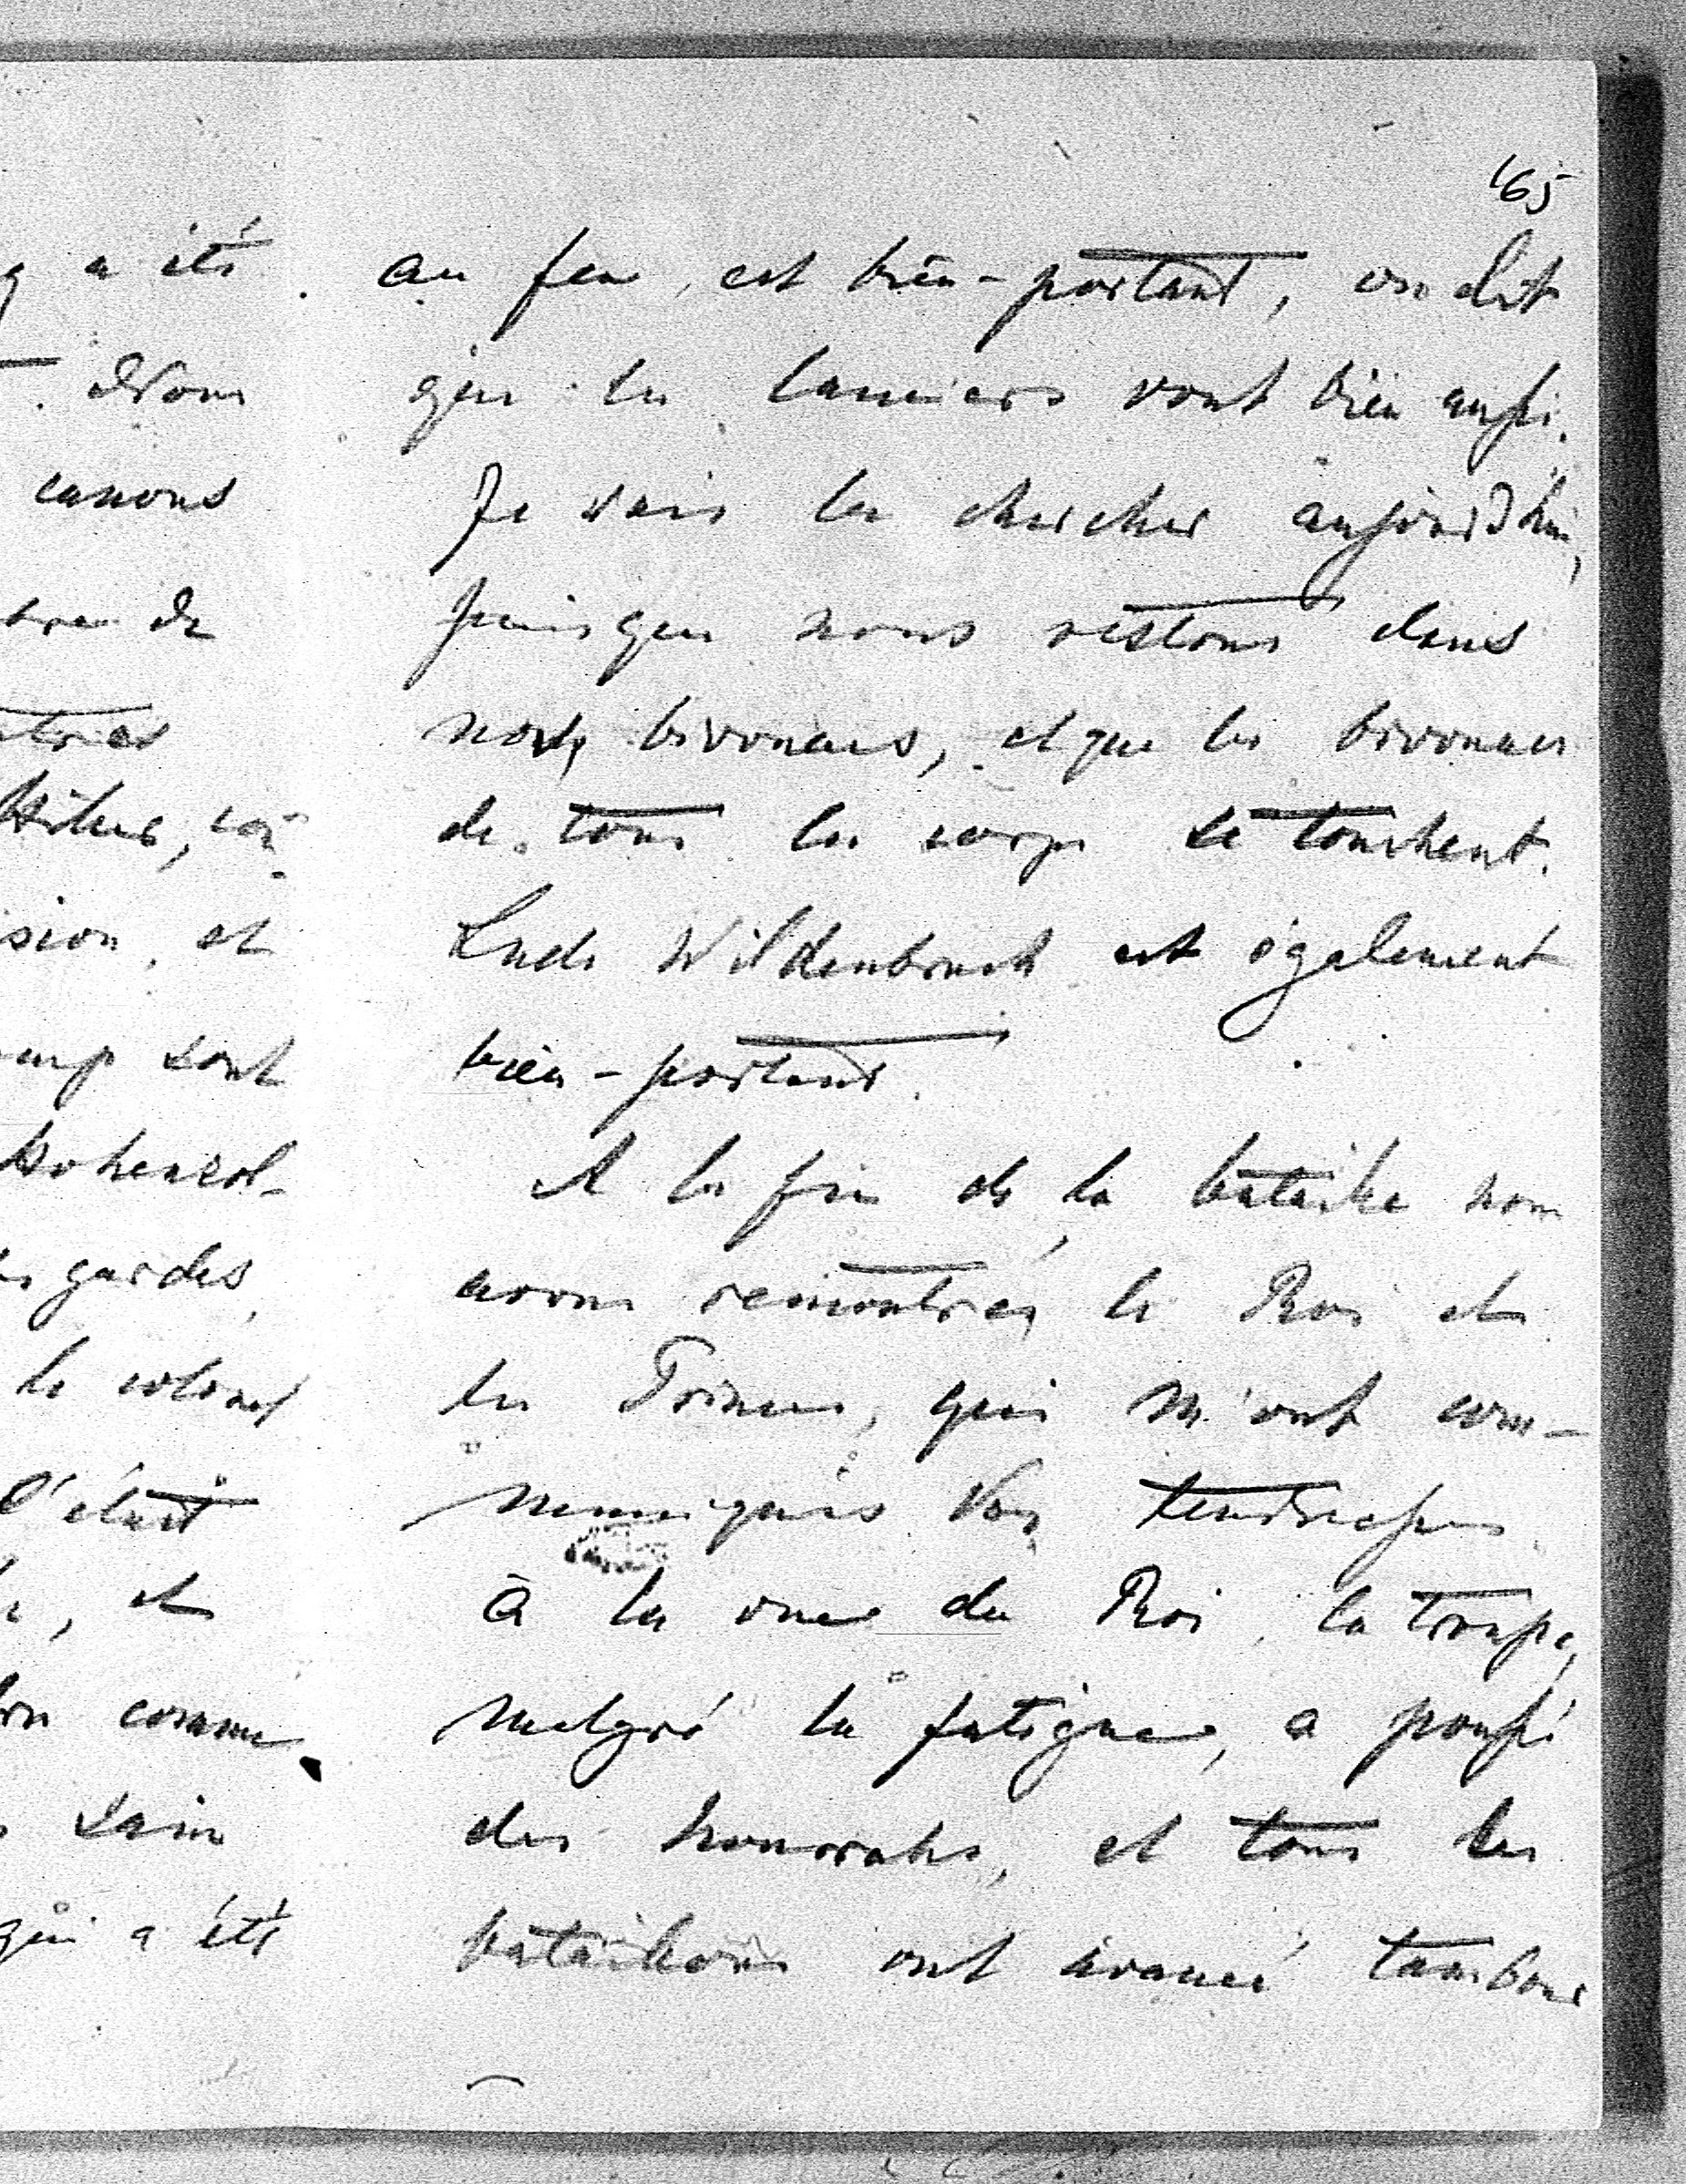 165
g a été
Nous
canons
de
Hiller,
sion, et
camp sont
Hohenzol-
gardes,
le colonel
l'était
, et
comme
sain
qui a été
au feu, est bien-portant, on dit
que les lanciers vont bien aussi.
Je vais les chercher aujourd'hui,
puisque nous restons dans
nos bivouacs, et que les bivouacs
de tous les corps se touchent.
Wildenbruch est également
bien-portant.
A la fin de la bataille nous
avons rencontrés le Roi et
les Princes, qui m'ont com-
muniqués Vos tendresses.
à la vue du Roi, la troupe,
malgré la fatigue, a poussé
des hourrahs, et tous les
bataillons ont avancé tambour